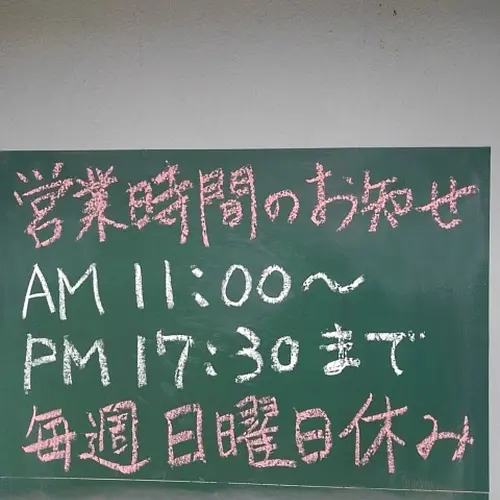 営業時間のお知せ
AM 11:00〜
PM 17:30 まで
毎週日曜日休み